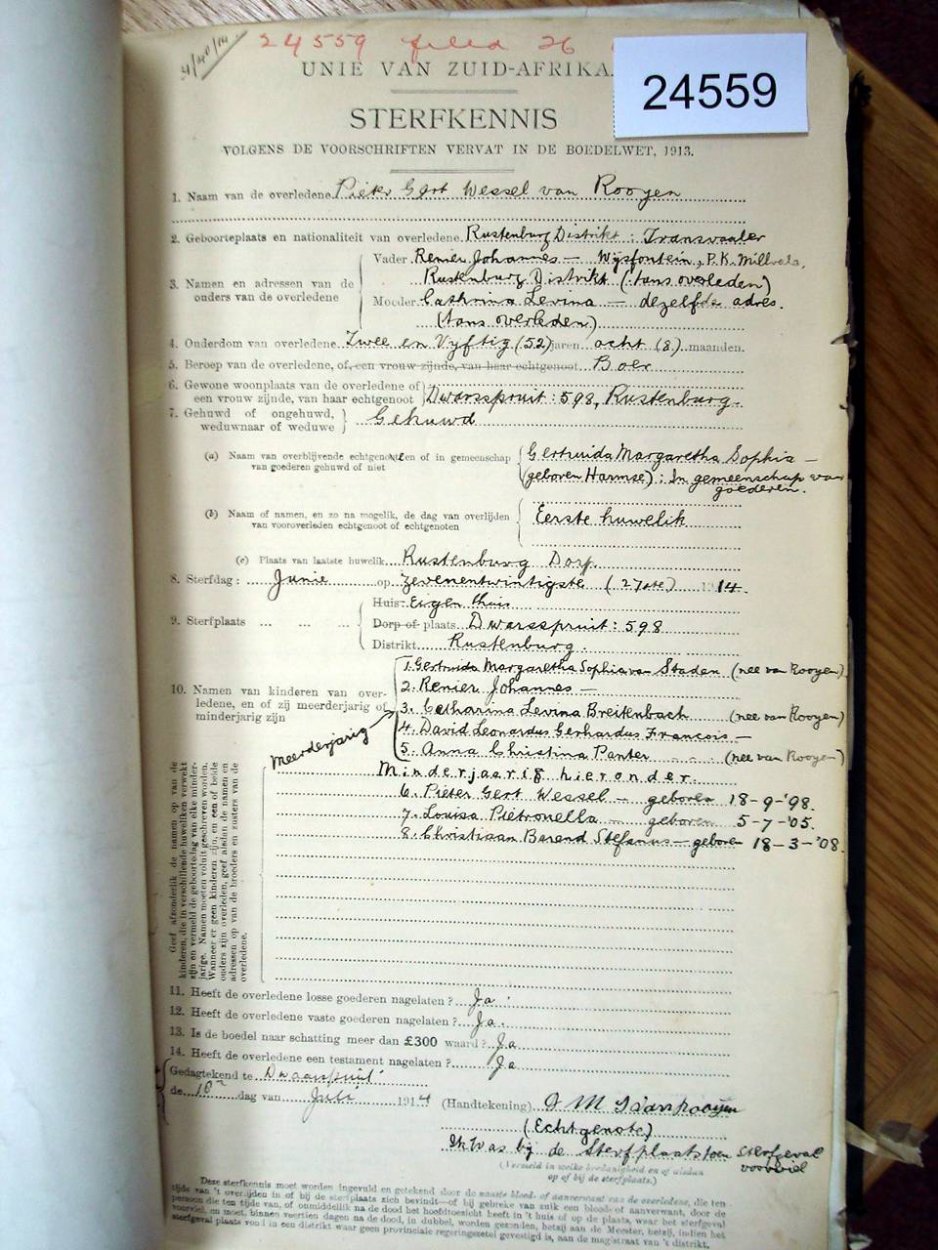 4/40/14
24559 filed 26
24559
UNIE VAN ZUID-AFRIKA.
STERFKENNIS
VOLGENS DE VOORSCHRIFTEN VERVAT IN DE BOEDELWET, 1913.
1. Naam van de overledene Pieter Gert Wessel van Rooyen
2. Geboorteplaats en nationaliteit van overledene Rustenburg Distrikt : Transvaaler
3. Namen en adressen van de ouders van de overledene
Vader Renier Johannes — Wysfontein, P.K. Millvale,
Rustenburg Distrikt (tans overleden)
Moeder Cathrina Levina — dezelfde adres.
(tans overleden)
4. Onderdom van overledene Twee en Vyftig (52) jaren acht (8) maanden.
5. Beroep van de overledene, of, een vrouw zijnde, van haar echtgenoot Boer
6. Gewone woonplaats van de overledene of een vrouw zijnde, van haar echtgenoot } Dwarsspruit : 598, Rustenburg.
7. Gehuwd of ongehuwd, weduwnaar of weduwe } Gehuwd
(a) Naam van overblijvende echtgenoten of in gemeenschap van goederen gehuwd of niet
Gertruida Margaretha Sophia —
(geboren Harmse) : In gemeenschap van
goederen.
(b) Naam of namen, en zo na mogelik, de dag van overlijden van vooroverleden echtgenoot of echtgenoten
Eerste huwelik
(c) Plaats van laatste huwelik Rustenburg Dorp.
8. Sterfdag : Junie op zevenentwintigste (27ste) 1914.
9. Sterfplaats ... ... ...
Huis : Eigen thuis
Dorp of plaats Dwarsspruit : 598
Distrikt Rustenburg.
10. Namen van kinderen van overledene, en of zij meerderjarig of minderjarig zijn
meerderjarig
1. Gertruida Margaretha Sophia van Staden (nee van Rooyen)
2. Renier Johannes —
3. Catharina Levina Breitenbach (nee van Rooyen)
4. David Leonardus Gerhardus Francois —
5. Anna Christina Panter (nee van Rooyen)
Minderjaarig hieronder.
6. Pieter Gert Wessel — geboren 18-9-'98.
7. Louisa Pietronella — geboren 5-7-'05.
8. Christiaan Barend Stefanus — geboren 18-3-'08.
Geef afzonderlik de namen op van de
kinderen, die in verschillende huweliken verwekt
zijn en vermeld de geboortedag van elke minder-
jarige. Namen moeten voluit geschreven worden.
Wanneer er geen kinderen zijn, en een of beide
ouders zijn overleden, geef alsdan de namen en
adressen op van de broeders en zusters van de
overledene.
11. Heeft de overledene losse goederen nagelaten ? Ja.
12. Heeft de overledene vaste goederen nagelaten ? Ja.
13. Is de boedel naar schatting meer dan £300 waard ? Ja
14. Heeft de overledene een testament nagelaten ? Ja
Gedagtekend te Dwarsspruit
de 10e dag van Juli 1914
(Handtekening) G M S van Rooijen
(Echtgenote)
Ik was by de Sterfplaats toen sterfgeval
voorviel
(Vermeld in welke hoedanigheid en of alsdan
op of bij de sterfplaats.)
Deze sterfkennis moet worden ingevuld en getekend door de naaste bloed- of aanverwant van de overledene, die ten
tijde van 't overlijden in of bij de sterfplaats zich bevindt—of bij gebreke van zulk een bloed- of aanverwant, door de
persoon die ten tijde van, of onmiddellik na de dood het hoofdtoezicht heeft in 't huis of op de plaats, waar het sterfgeval
voorviel, en moet, binnen veertien dagen na de dood, in dubbel, worden gezonden, hetzij aan de Meester, hetzij, indien het
sterfgeval plaats vond in een distrikt waar geen provinciale regeringszetel gevestigd is, aan de magistraat van 't distrikt.